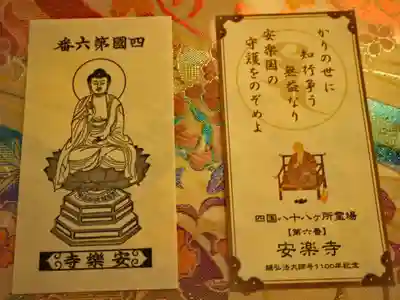 四國第六番
安樂寺
かりの世に
知行争う
無益なり
安楽国の
守護をのぞめよ
四国八十八ヶ所霊場
【第六番】
安楽寺
弘法大師号1100年記念